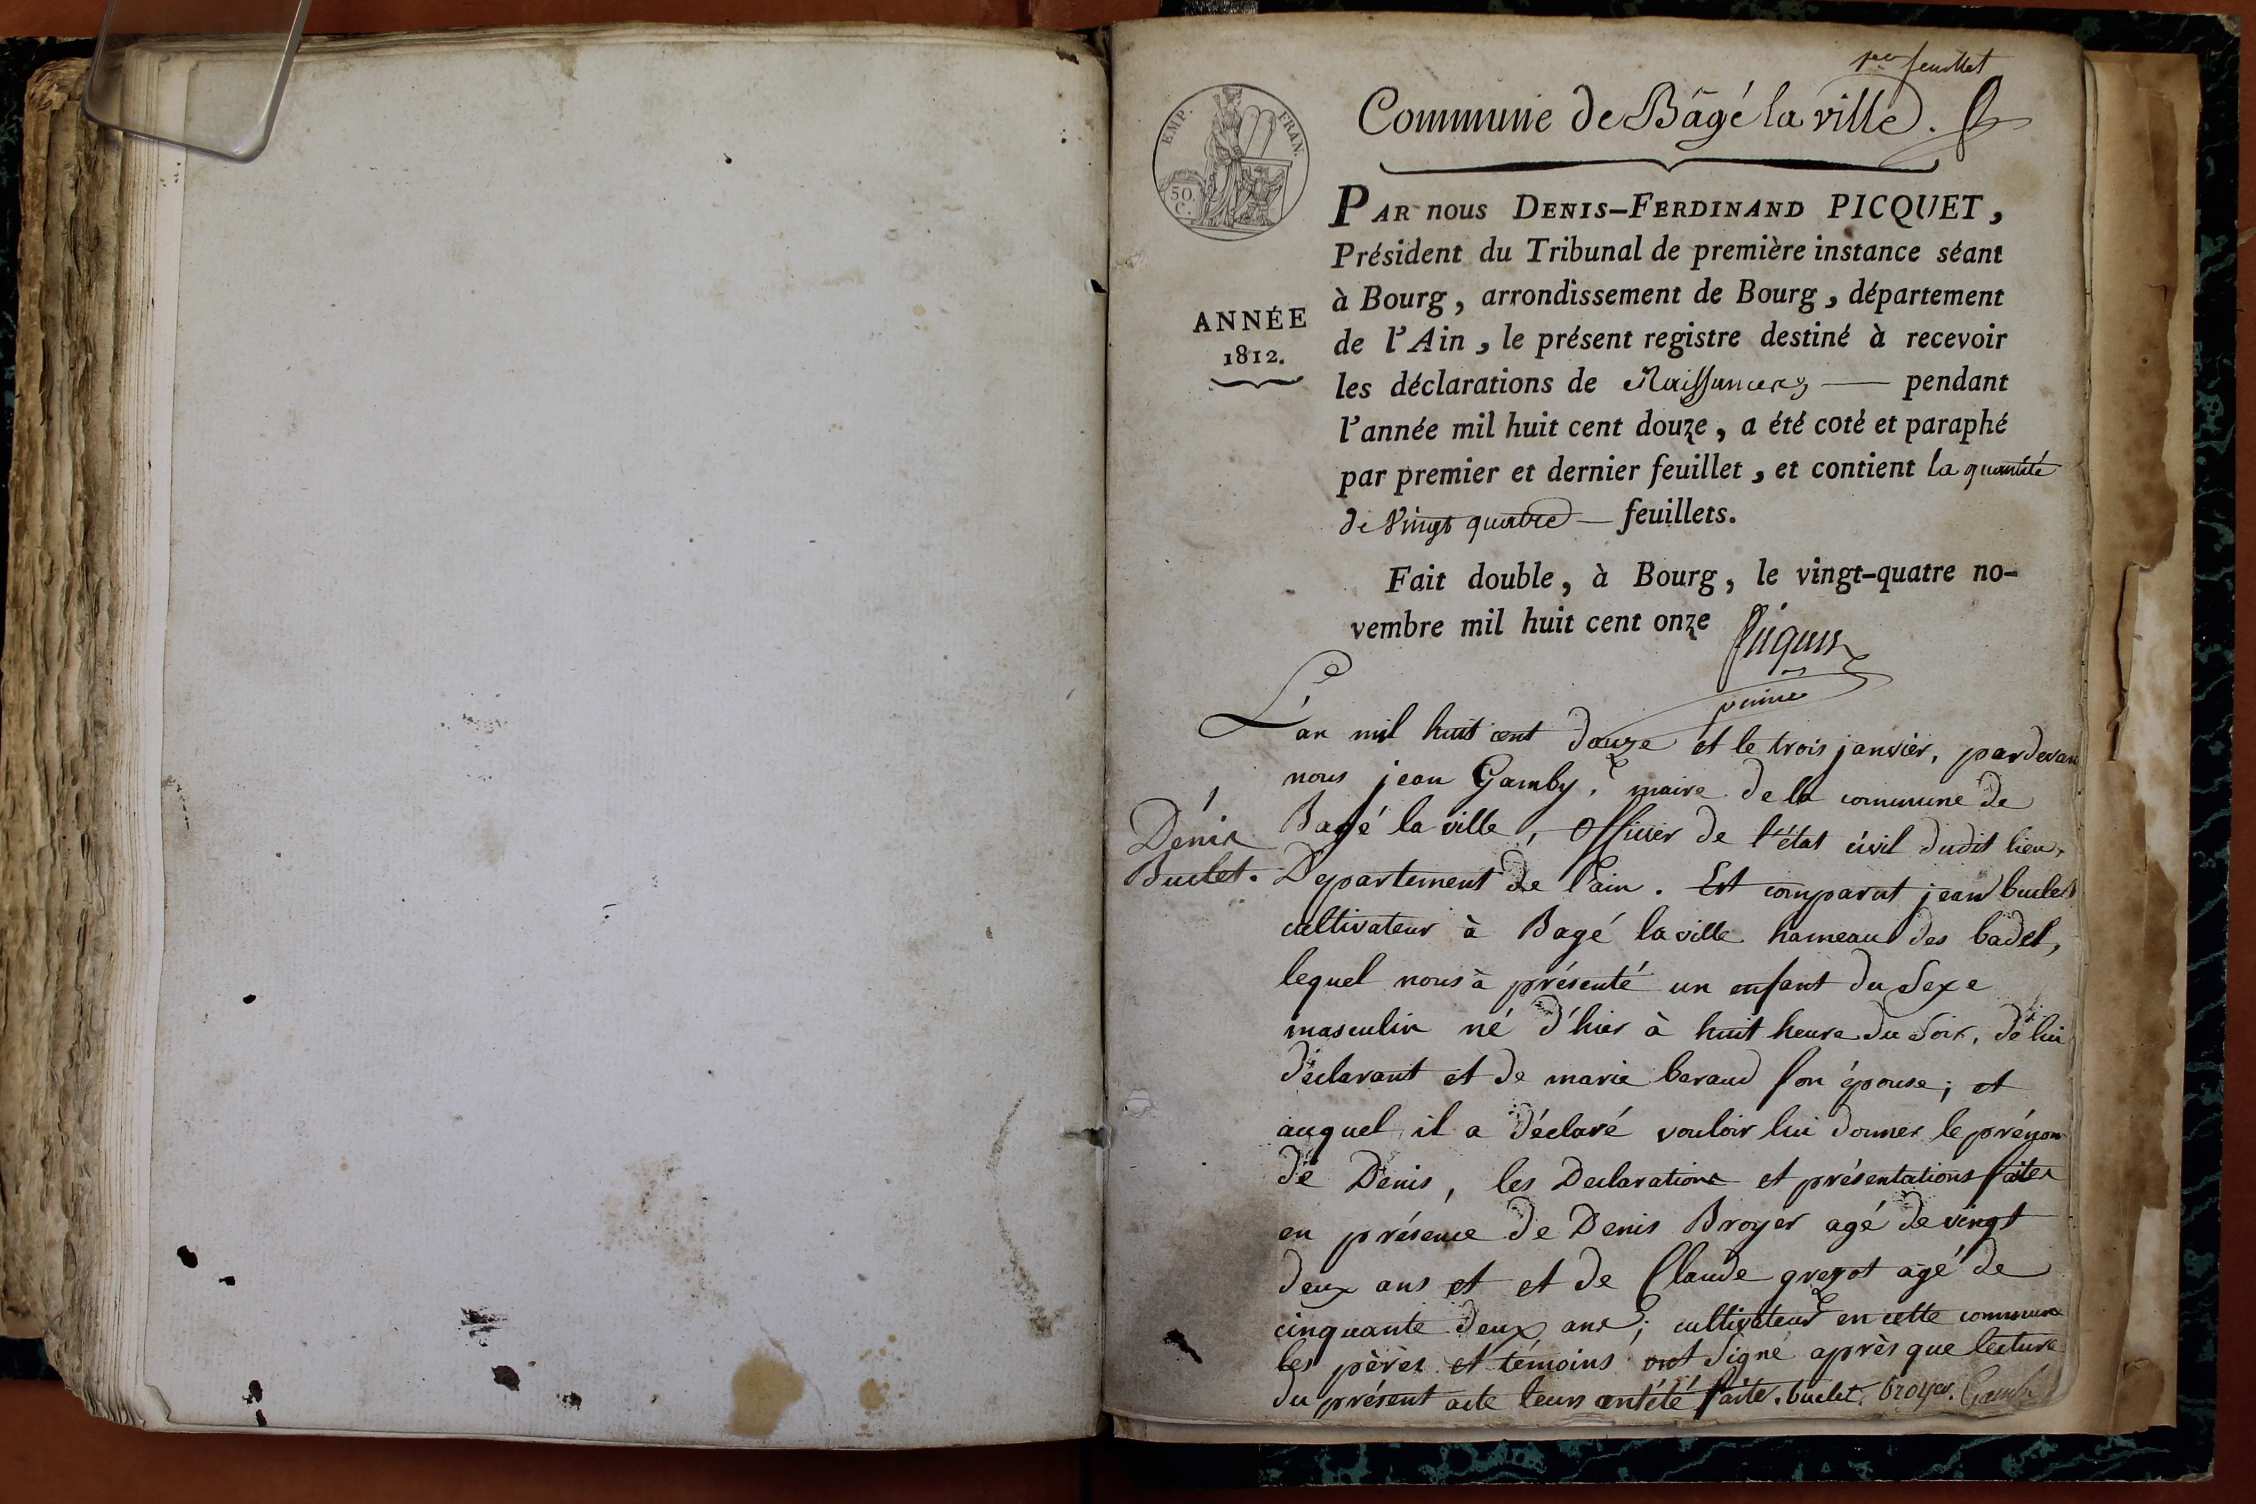 1er feuillet
Commune de Bâgé la ville.
EMP. FRAN.
50. C.
PAR nous DENIS-FERDINAND PICQUET,
Président du Tribunal de première instance séant
à Bourg, arrondissement de Bourg, département
de l'Ain, le présent registre destiné à recevoir
les déclarations de Naissances — pendant
l'année mil huit cent douze, a été coté et paraphé
par premier et dernier feuillet, et contient la quantité
de vingt quatre — feuillets.
ANNÉE
1812.
Fait double, à Bourg, le vingt-quatre no-
vembre mil huit cent onze
Picquet
L'an mil huit cent douze et le trois janvier, pardevant
nous jean Gamby, maire de la commune de
Bagé la ville, officier de l'état civil dudit lieu,
Département de l'ain. Est comparut jean buclet
cultivateur à Bagé la ville hameau des badel,
lequel nous à présenté un enfant du Sexe
masculin né d'hier à huit heure du Soir, de lui
déclarant et de marie beraud son épouse; et
auquel il a déclaré vouloir lui donner le prénom
de Denis, les Declarations et présentations faites
en présence de Denis Broyer agé de vingt
deux ans et et de Claude grezot agé de
cinquante deux ans; cultivateur en cette commune
les pères et témoins ont Signé après que lecture
du présent acte leurs ont été faite. buclet. broyer. Gamby
1
Denis
Buclet.